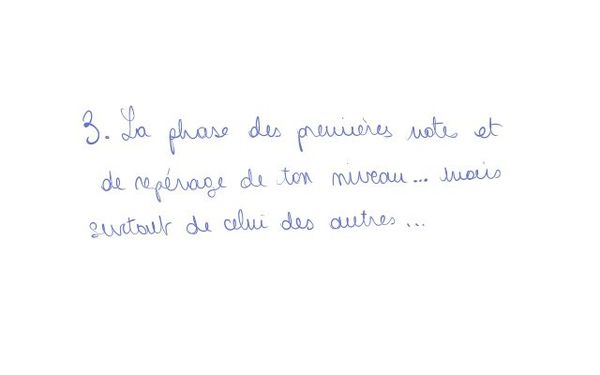 3. La phase des premières note et
de repérage de ton niveau... mais
surtout de celui des autres...